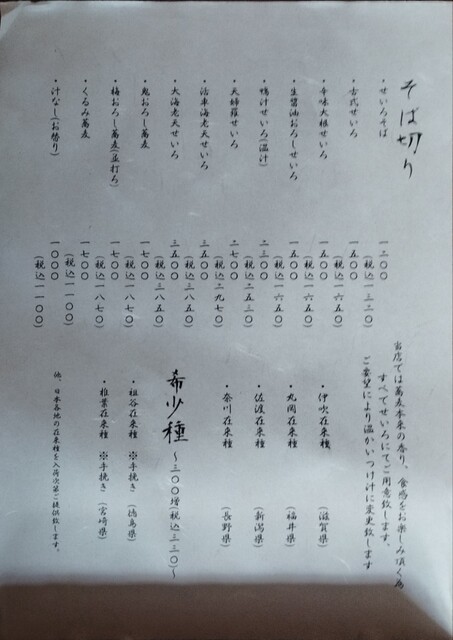 そば切り
・せいろそば 一二〇〇
(税込一三二〇)
・古代せいろ 一五〇〇
(税込一六五〇)
・辛味大根せいろ 一五〇〇
(税込一六五〇)
・生醤油おろしせいろ 一五〇〇
(税込一六五〇)
・鴨汁せいろ(温汁) 二三〇〇
(税込二五三〇)
・天婦羅せいろ 二七〇〇
(税込二九七〇)
・活車海老天せいろ 三五〇〇
(税込三八五〇)
・大海老天せいろ 三五〇〇
(税込三八五〇)
・鬼おろし蕎麦 一七〇〇
(税込一八七〇)
・梅おろし蕎麦(並打ち) 一七〇〇
(税込一八七〇)
・くるみ蕎麦 一七〇〇
(税込一一〇〇)
・汁なし(お替り) 一〇〇〇
(税込一一〇〇)
当店では蕎麦本来の香り、食感をお楽しみ頂く為
すべてせいろにてご用意致します。
ご要望により温かいつけ汁に変更致します
・伊吹在来種 (滋賀県)
・丸岡在来種 (福井県)
・佐渡在来種 (新潟県)
・奈川在来種 (長野県)
希少種 〜三〇〇増(税込三三〇)〜
・祖谷在来種 ※手挽き(徳島県)
・椎葉在来種 ※手挽き(宮崎県)
他、日本各地の在来種を入荷次第ご提供致します。